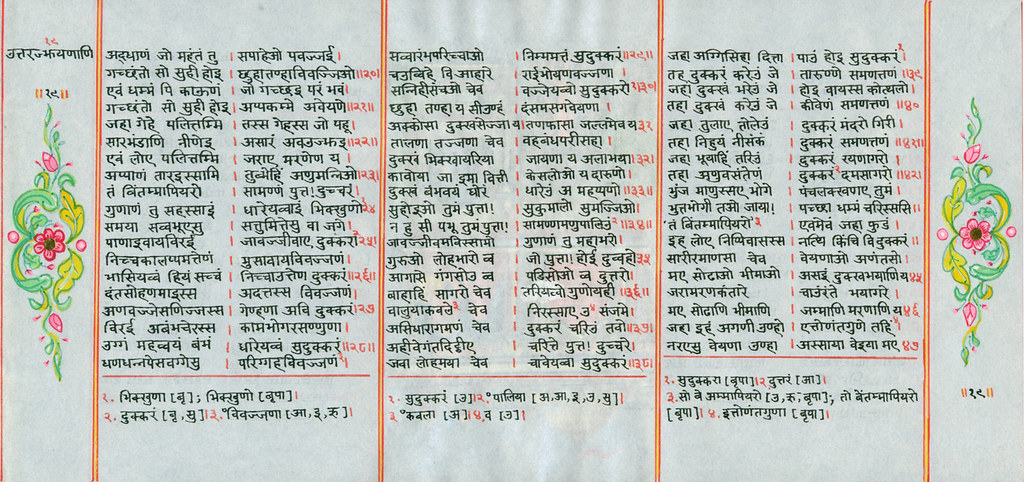 १९
उत्तरज्झयणाणि
॥१९॥
अद्धाणं जो महंतं तु । सपाहेओ पवज्जई।
गच्छंतो सो सुही होइ । छुहातण्हाविवज्जिओ॥२०॥
एवं धम्मं पि काऊणं । जो गच्छइ परं भवं
गच्छंतो सो सुही होइ । अप्पकम्मे अवेयणे॥२१॥
जहा गेहे पलित्तम्मि । तस्स गेहस्स जो पहू।
सारभंडाणि नीणेइ । असारं अवउज्झइ॥२२॥
एवं लोए पलित्तम्मि । जराए मरणेण य।
अप्पाणं तारइस्सामि । तुब्भेहिं अणुमन्निओ॥२३॥
तं बिंतम्मापियरो । सामण्णं पुत्त! दुच्चरं।
गुणाणं तु सहस्साइं । धारेयव्वाइं भिक्खुणो॥२४
समया सव्वभूएसु । सत्तुमित्तेसु वा जगे।
पाणाइवायविरई । जावज्जीवाए दुक्करा॥२५॥
निच्चकालप्पमत्तेणं । मुसावायविवज्जणं।
भासियव्वं हियं सच्चं । निच्चाउत्तेण दुक्करं॥२६॥
दंतसोहणमाइस्स । अदत्तस्स विवज्जणं।
अणवज्जेसणिज्जस्स । गेण्हणा अवि दुक्करं॥२७
विरई अबंभचेरस्स । कामभोगरसण्णुणा।
उग्गं महव्वयं बंभं । धारेयव्वं सुदुक्करं॥२८॥
धणधन्नपेसवग्गेसु । परिग्गहविवज्जणं।
१. भिक्खुणा [बृ]; भिक्खुणो [बृपा]।
२. दुक्करं [बृ, सु]। ३. °विवज्जणा [आ, इ, ऋ]।
सव्वारंभपरिच्चाओ । निम्ममत्तं सुदुक्करं॥२९॥
चउव्विहे वि आहारे । राईभोयणवज्जणा।
सन्निहीसंचओ चेव । वज्जेयव्वो सुदुक्करो॥३०॥
छुहा तण्हा य सीउण्हं । दंसमसगवेयणा।
अक्कोसा दुक्खसेज्जा य। तणफासा जल्लमेव य ३१
तालणा तज्जणा चेव । वहबंधपरीसहा।
दुक्खं भिक्खायरिया । जायणा य अलाभया॥३२॥
कावोया जा इमा वित्ती । केसलोओ य दारुणो।
दुक्खं बंभवयं घोरं । धारेउं अ महप्पणो॥३३॥
सुहोइओ तुमं पुत्ता! । सुकुमालो सुमज्जिओ।
न हु सी पभू तुमं पुत्ता! । सामण्णमणुपालिउं॥३४॥
जावज्जीवमविस्सामो । गुणाणं तु महाभरो।
गुरुओ लोहभारो व्व । जो पुत्ता! होइ दुव्वहो॥३५
आगासे गंगसोउ व्व । पडिसोओ व्व दुत्तरो।
बाहाहिं सागरो चेव । तरियव्वो गुणोयही॥३६॥
वालुयाकवले चेव । निरस्साए उ संजमे।
असिधारागमणं चेव । दुक्करं चरिउं तवो॥३७॥
अहीवेगंतदिट्ठीए । चरित्ते पुत्त! दुच्चरे।
जवा लोहमया चेव । चावेयव्वा सुदुक्करं॥३८॥
१. सुदुक्करं [उ]। २. °पालिया [अ,आ,इ,उ,सु]।
३ °कवला [अ]। ४.व [उ]।
जहा अग्गिसिहा दित्ता । पाउं होइ सुदुक्करं।
तह दुक्करं करेउं जे । तारुण्णे समणत्तणं॥३९
जहा दुक्खं भरेउं जे । होइ वायस्स कोत्थलो।
तहा दुक्खं करेउं जे । कीवेणं समणत्तणं॥४०
जहा तुलाए तोलेउं । दुक्करं मंदरो गिरी।
तहा निहुयं नीसंकं । दुक्करं समणत्तणं॥४१॥
जहा भूयाहिं तरिउं । दुक्करं रयणागरो।
तहा अणुवसंतेणं । दुक्करं दमसागरो॥४२॥
भुंज माणुस्सए भोगे । पंचलक्खणए तुमं।
भुत्तभोगी तओ जाया! । पच्छा धम्मं चरिस्ससि॥
तं बिंतम्मापियरो । एवमेयं जहा फुडं।
इह लोए निप्पिवासस्स । नत्थि किंचि वि दुक्करं॥
सारीरमाणसा चेव । वेयणाओ अणंतसो।
मए सोढाओ भीमाओ । असइं दुक्खभयाणि य॥४५
जरामरणकंतारे । चाउरंते भयागरे।
मए सोढाणि भीमाणि । जम्माणि मरणाणि य॥४६
जहा इहं अगणी उण्हो । एत्तोणंतगुणे तहिं।
नरएसु वेयणा उण्हा । अस्साया वेइया मए ४७
१. सुदुक्करा [बृपा]। २ दुत्तरं [आ]।
३. सो बे अम्मापियरो [उ,ऋ,बृपा]; तो बेंतम्मापियरो
[बृपा]। ४. इत्तोणंतगुणा [बृपा]।
॥१९॥